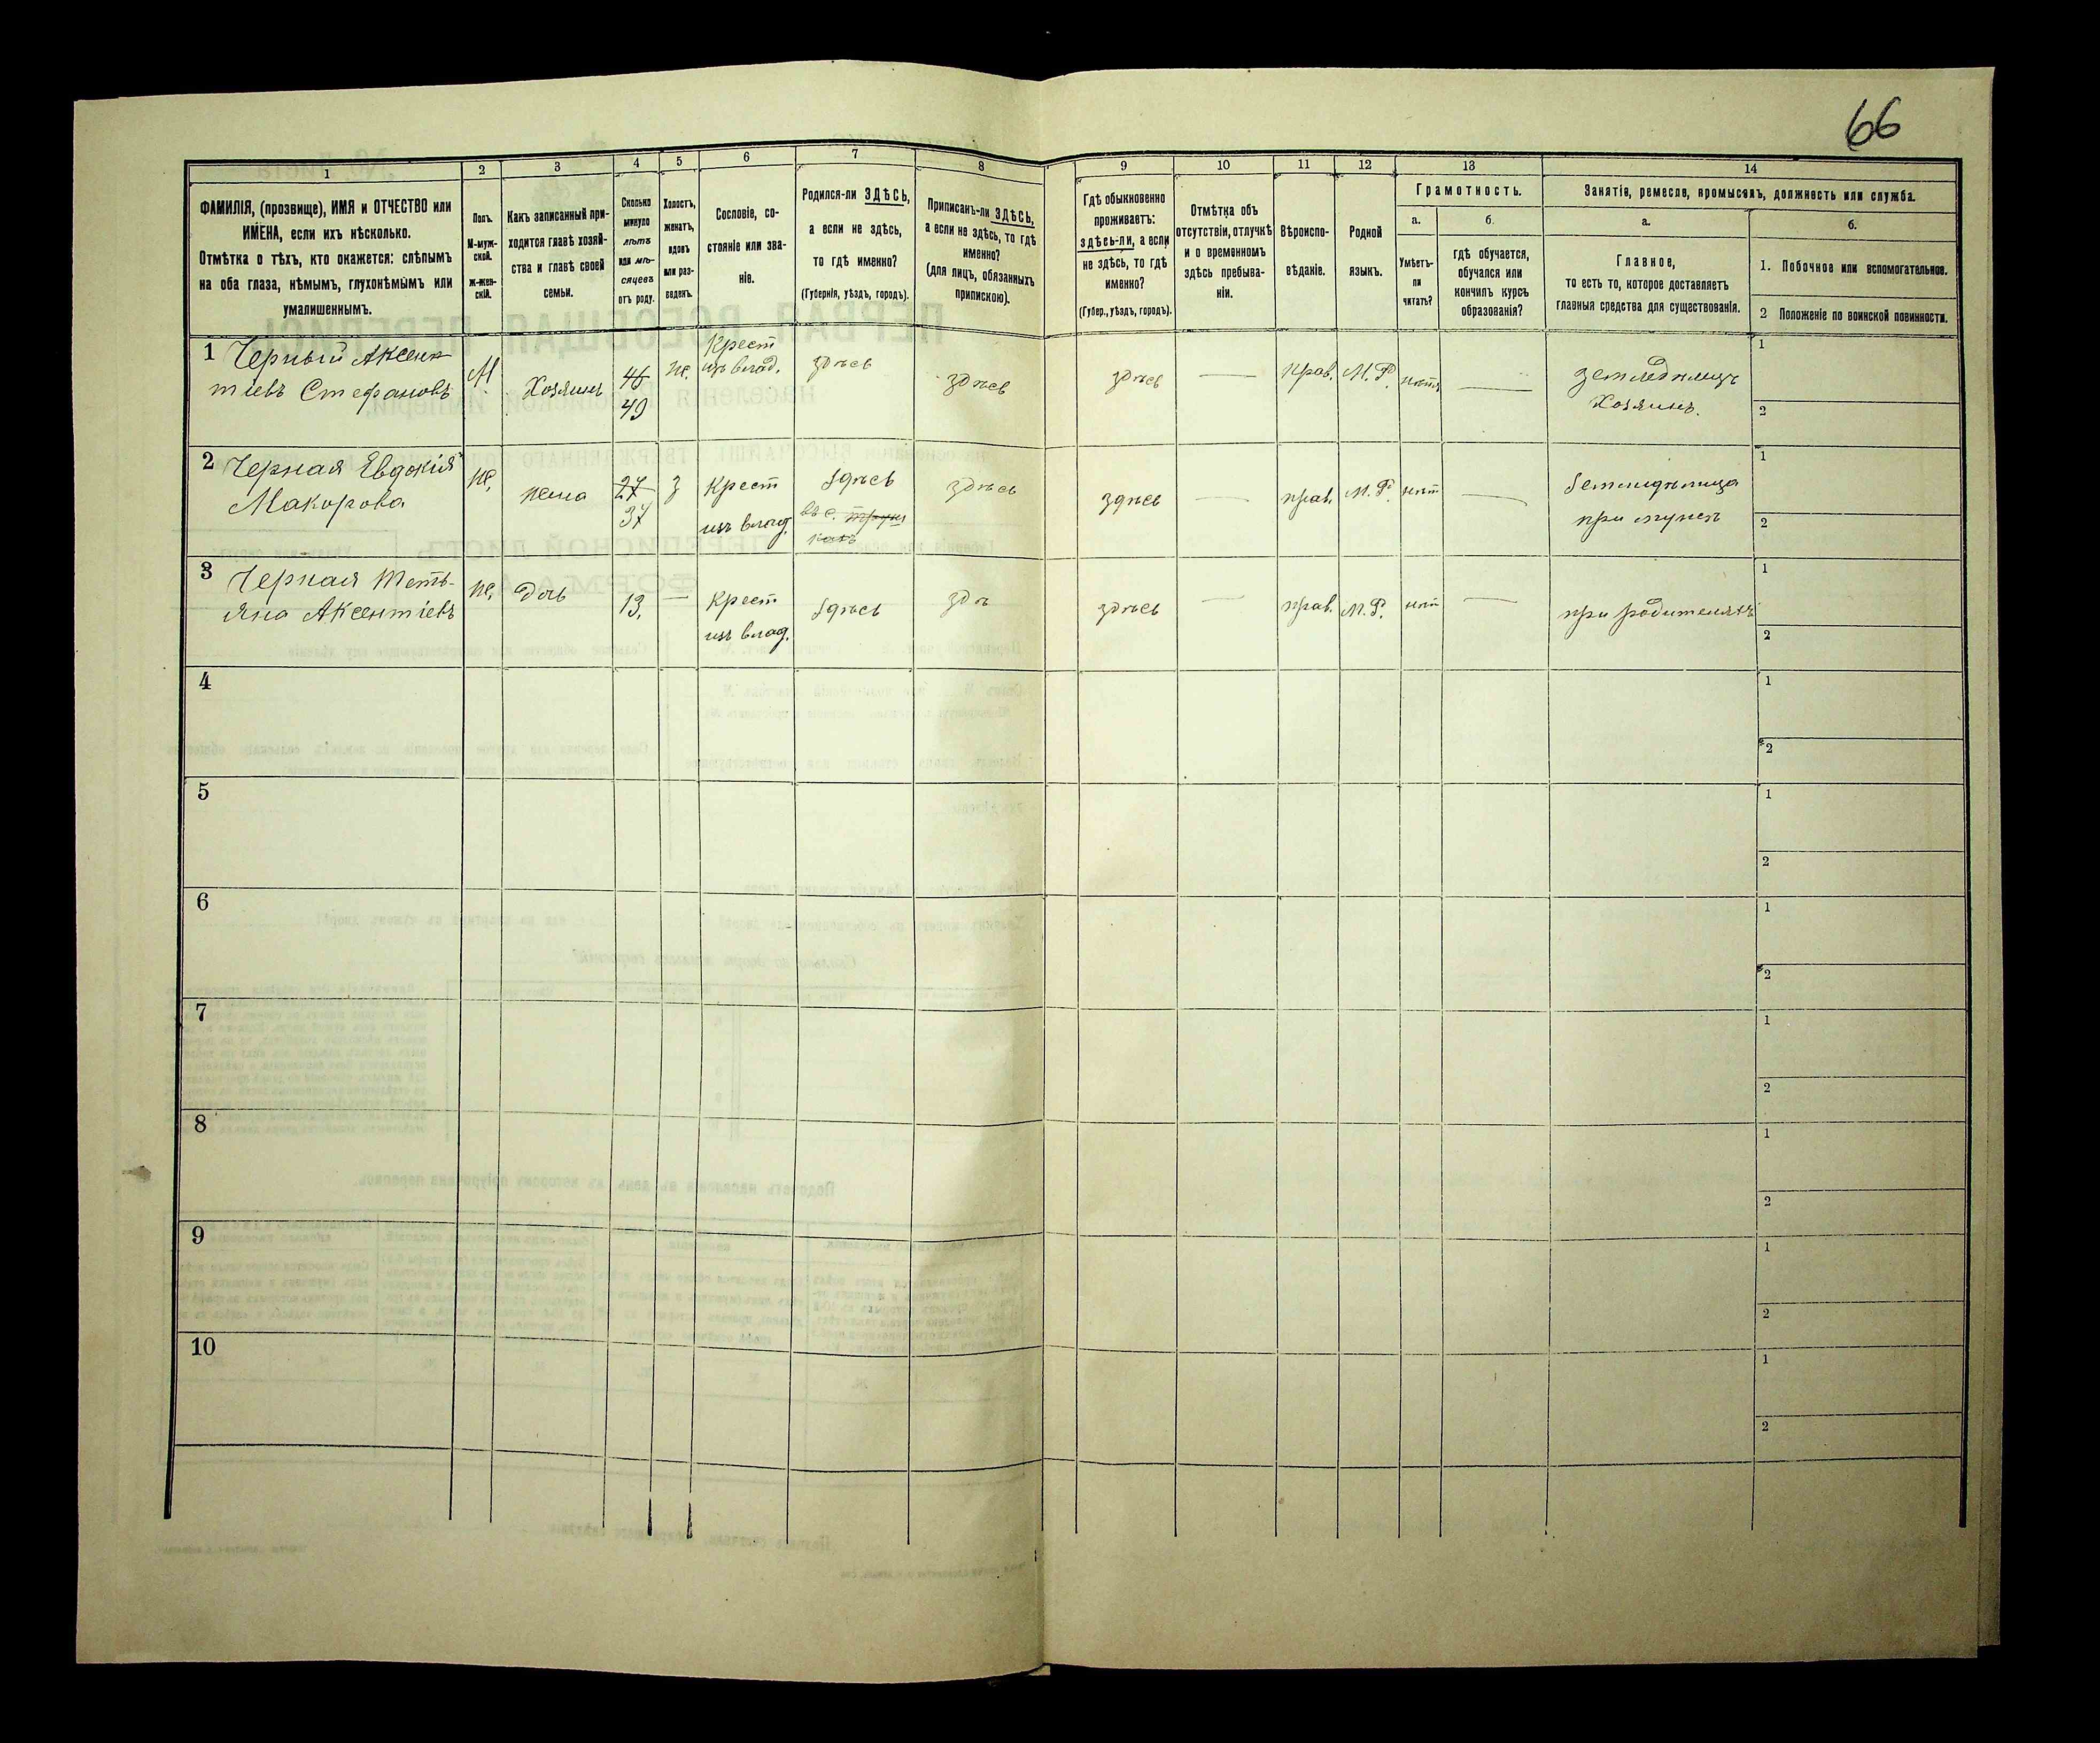 66
1
2
3
4
5
6
7
8
9
10
11
12
13
14
ФАМИЛІЯ, (прозвище), ИМЯ и ОТЧЕСТВО или
ИМЕНА, если ихъ нѣсколько.
Отмѣтка о тѣхъ, кто окажется: слѣпымъ
на оба глаза, нѣмымъ, глухонѣмымъ или
умалишеннымъ.
Полъ.
М-муж-
ской.
ж-жен-
скій.
Какъ записанный при-
ходится главѣ хозяй-
ства и главѣ своей
семьи.
Сколько
минуло
лѣтъ
или мѣ-
сяцевъ
отъ роду.
Холостъ,
женатъ,
вдовъ
или раз-
веденъ.
Сословіе, со-
стояніе или зва-
ніе.
Родился-ли ЗДѢСЬ,
а если не здѣсь,
то гдѣ именно?
(Губернія, уѣздъ, городъ).
Приписанъ-ли ЗДѢСЬ,
а если не здѣсь, то гдѣ
именно?
(для лицъ, обязанныхъ
припискою).
Гдѣ обыкновенно
проживаетъ:
здѣсь-ли, а если
не здѣсь, то гдѣ
именно?
(Губер., уѣздъ, городъ).
Отмѣтка объ
отсутствіи, отлучкѣ
и о временномъ
здѣсь пребыва-
ніи.
Вѣроиспо-
вѣданіе.
Родной
языкъ.
Грамотность.
а.
б.
Умѣетъ-
ли
читать?
гдѣ обучается,
обучался или
кончилъ курсъ
образованія?
Занятіе, ремесло, промыселъ, должность или служба.
а.
б.
Главное,
то есть то, которое доставляетъ
главныя средства для существованія.
1. Побочное или вспомогательное.
2 Положеніе по воинской повинности.
1 Черный Аксен
тіевъ Стефановъ
М
Хозяинъ
46
49
же.
Крест
изъ влад.
здѣсь
здѣсь
здѣсь
Прав.
М. Р.
нѣтъ
земледѣлецъ
Хозяинъ.
1
2
2 Черная Евдокія
Макорова
же,
жена
27
37
з
Крест
изъ влад.
здѣсь
въ с.
здѣсь
здѣсь
прав.
М. Р.
нѣт
земледѣлица
при мужѣ
1
2
3 Черная Теть-
яна Аксентіевъ
же,
Дочь
13.
Крест
изъ влад.
здѣсь
здѣ
здѣсь
прав.
М. Р.
нѣт
при родителяхъ
1
2
4
1
2
5
1
2
6
1
2
7
1
2
8
1
2
9
1
2
10
1
2